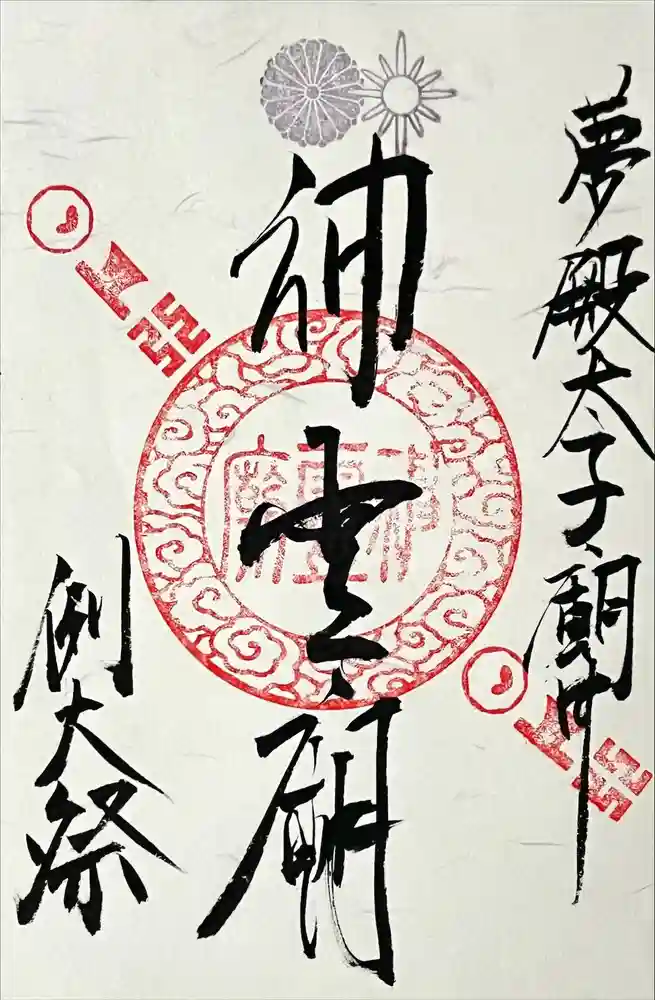 夢殿太子廟中
神霊廟
例大祭
神霊廟